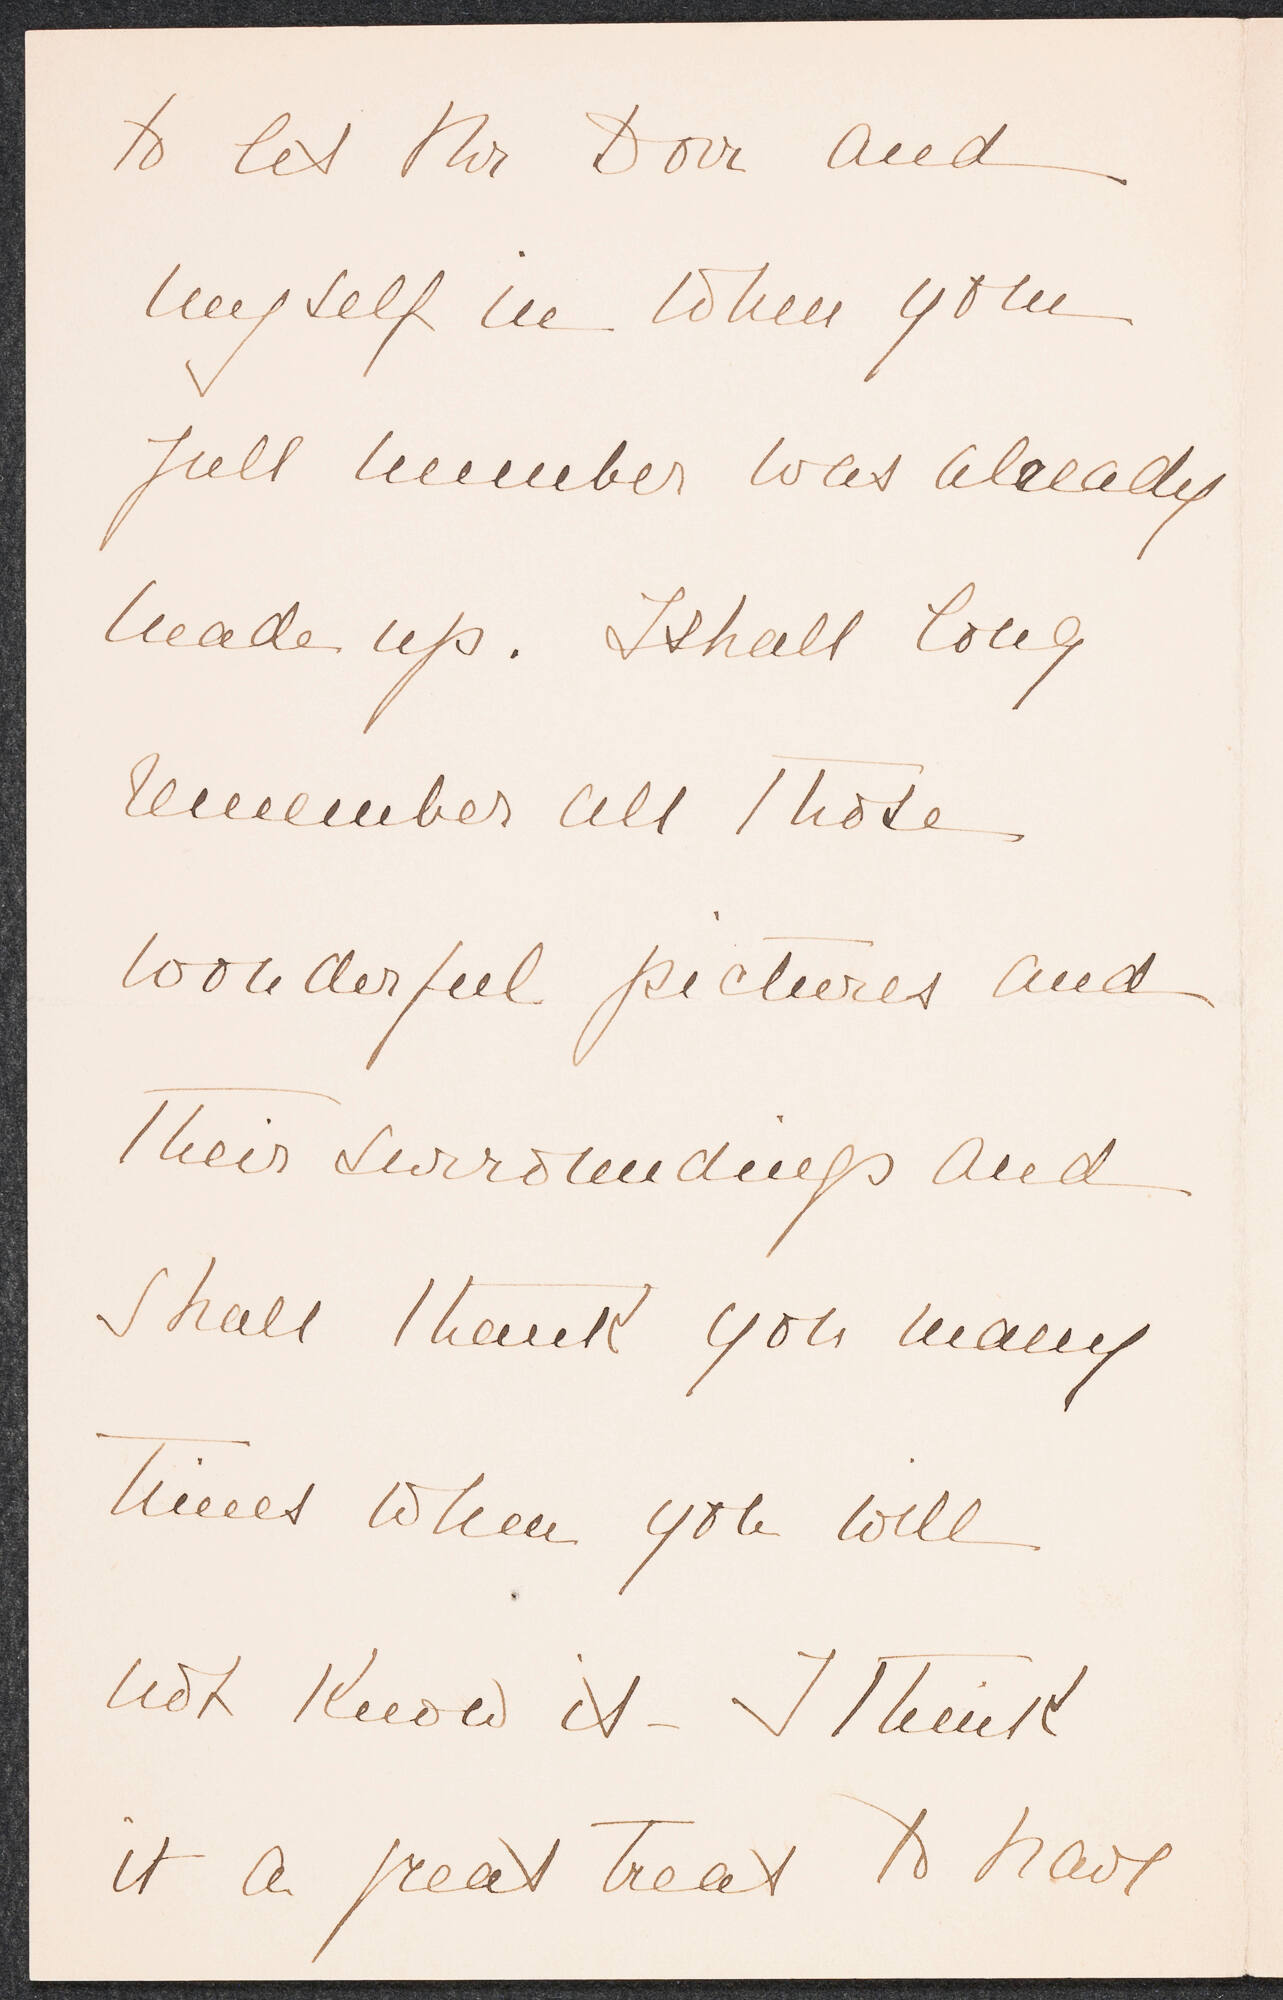 to let Mr Dorr and
myself in when your
full number was already
made up. I shall long
remember all those
wonderful pictures and
their surroundings and
shall thank you many
times when you will
not know it - I think
it a great treat to have